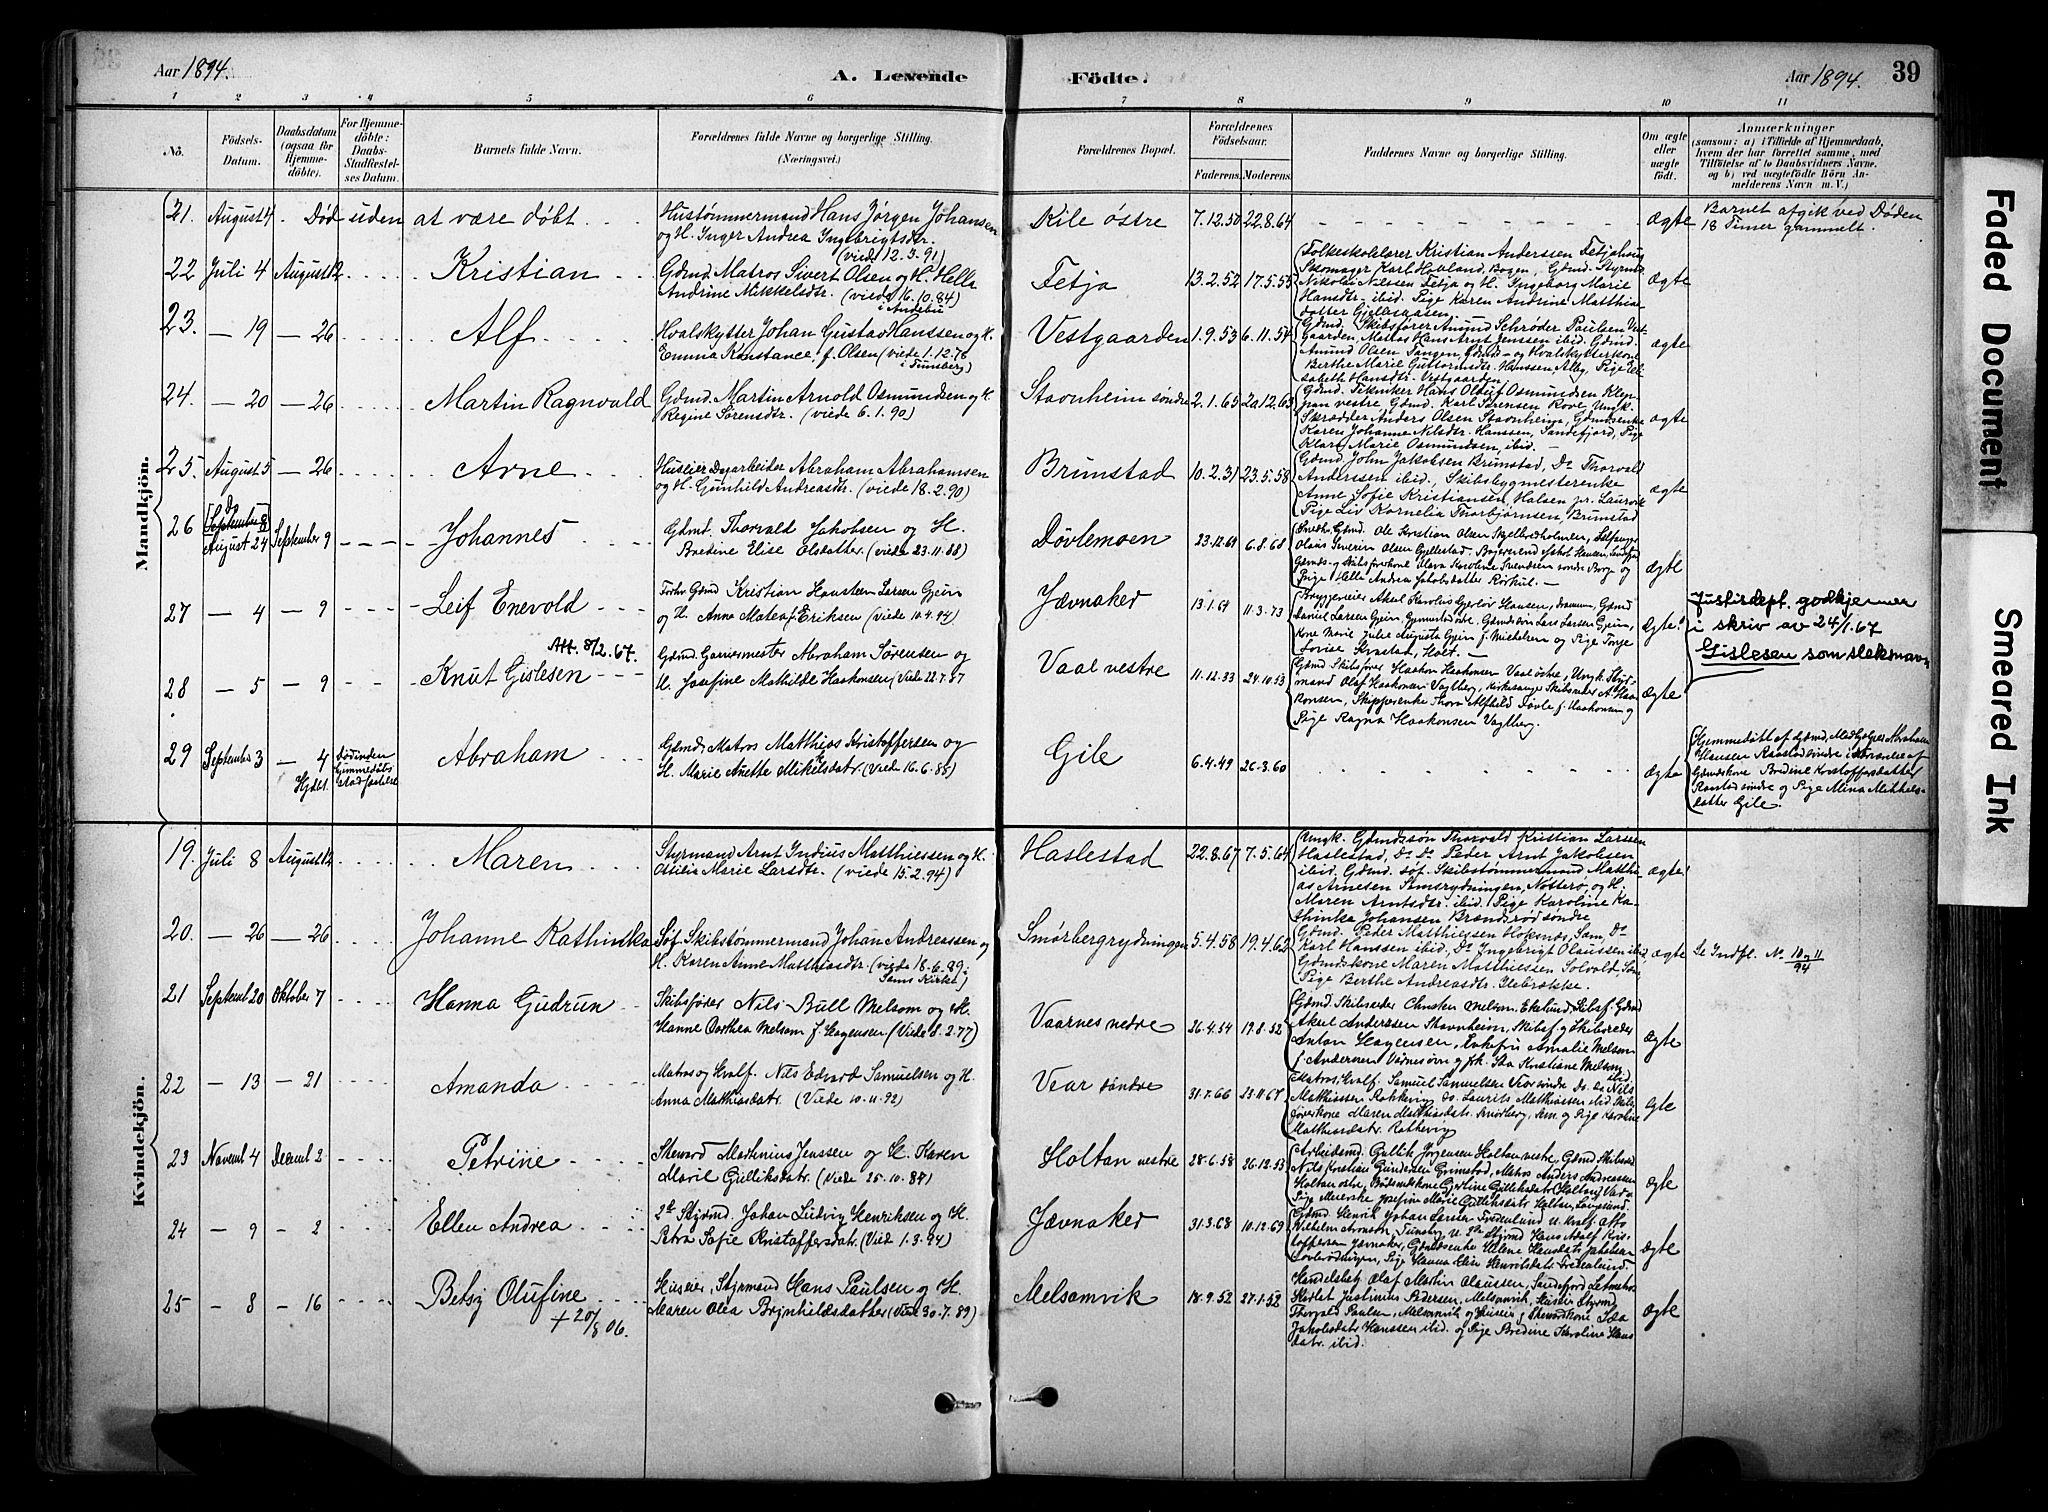 Aar 1894.
A. Levende
Födte.
Aar 1894.
39
1 2 3 4 5 6 7 8 9 10 11
No.
Födsels-
Datum.
Daabsdatum
(ogsaa for
Hjemme-
döbte).
For Hjemme-
döbte:
Daabs-
Stadfæstel-
ses Datum.
Barnets fulde Navn.
Forældrenes fulde Navne og borgerlige Stilling.
(Næringsvei.)
Forældrenes Bopæl.
Forældrenes
Födselsaar.
Faderens. Moderens.
Faddernes Navne og borgerlige Stilling.
Om ægte
eller
uægte
födt.
Anmærkninger
(saasom: a) i Tilfælde af Hjemmedaab,
hvem der har forrettet samme, med
Tilföielse af to Daabsvidners Navne.
og b) ved uægtefödte Börn An-
melderens Navn m. V.)
Mandkjön.
21. August 4 . Död uden at være döbt
Hustömmermand Hans Jörgen Johansen
og H. Inger Andrea Ingebrigtsdtr.
(viede 12.3.91)
Kile östre 7.12.50 22.8.64 ægte
Barnet afgik ved Döden
18 Timer gammelt.
22 Juli 4 August 12 Kristian
Gdmd. Matros Sivert Olsen og H. Helle
Andrine Mikkelsdtr. (viede 16.10.84)
i Andebu
Fetja 13.2.52 17.5.55
Folkeskolelærer Kristian Anderssen Fetja
Skomager Karl Bogen, Gdmd. Styrmd.
Nikolai Nilssen Fetja og H. Ingeborg Marie
Hansdtr. ibid. Pige Karen Andrine Matthias
datter
ægte
23. — 19 — 26 Alf
Hvalskytter Johan Gustav Hanssen og H.
Emma Konstance, f. Olsen (viede 1.12.76
i Tunsberg)
Vestgaarden 1.9.53 6.11.54
Gdmd. Skibsförer Amund Schröder Paulsen Vest-
gaarden, Matros Hans Arnt Jenssen ibid. Gdmd.
Amund Olsen Tangen, Gdmd- og Hvalskytterkone
Berthe Marie Guttormsdtr. Hanssen, Pige Eli-
sabeth Hansdtr. Vestgaarden
ægte
24. — 20 — 26 Martin Ragnvald
Gdmd. Martin Arnold Osmundsen og H.
Regine Sörensdtr. (viede 6.1.90)
Stavnheim söndre 2.1.65 20.12.63
Gdmd. Hans Oluf Osmundsen Klep-
pan vestre Gdmd. Karl Sörensen Rove Ungk.
Skrædder Anders Olsen Stavnheim, Gdmdsenke
Karen Johanne Nilsdtr. Hanssen, Sandefjord, Pige
Klara Marie Osmundsen, ibid.
ægte
25. August 5 — 26 Arne
Huseier Dagarbeider Abraham Abrahamsen
og H. Gunhild Andreasdtr. (viede 18.2.90)
Brunstad 10.2.31 23.5.58
Gdmd. John Jakobsen Brunstad, Do Thorvald
Anderssen ibid., Skibsbygmesterenke
Anne Sofie Kristiansen, Halsen pr. Laurvik
Pige Liv Kornelia Thorbjörnsen, Brunstad
ægte
26 September 8
August 24 September 9 Johannes
Gdmd. Thorvald Jakobsen og H.
Bredine Elise Olsdatter. (viede 23.11.88)
Dövlemoen 6.8.68
Gdmd. Ole Kristian Olsen Skjelbredholmen,
Olaus Severin Olsen Gyllestad.
Gdmds- og skibsförerkone Olava Karoline Svendsen söndre Borge og
Pige Helle Andrea Jakobsdatter Rörkul. —
ægte
27 — 4 — 9 Leif Enevold
Gdmd Kristian Hansteen Larsen Gjein
og H. Anna Matea f. Eriksen (Viede 10.4.94)
Jævnaker 13.1.64 11.3.73
Bryggerieier Axel Karolius Gjerlöv Hansen, Drammen, Gdmd
Daniel Larsen Gjein, Gjennestad östre, Gdmdssön Lars Larsen Gjein,
Kone Marie Julie Augusta Gjein f. Mikkelsen og Pige Tonje
Lovise Krostad, Holt. —
ægte!
Justisdept. godkjenner
i skriv av 24/1.67
Gislesen som slektsnavn
Att. 8/2.67.
28 — 5 — 9 Knut Gislesen
Gdmd. Garvermester Abraham Sörensen og
H. Josefine Mathilde Haakonsen (Viede 22.7.87
Vaal vestre 11.12.33 24.10.53
Gdmd Skibsförer Haakon Haakonsen Vaal östre, Ungk. Styr-
mand Olaf Haakonsen Vagtberg, Kirkesanger Skibsreder A. Haa-
konsen, Skipperenke Thora Alfhild Dövle f. Haakonsen og
Pige Ragna Haakonsen Vagtberg.
ægte
29 September 3 — 4
Hjdbt.
Död inden
Hjemmedåbs
Stadfæstelse
Abraham
Gdmds Matros Matthias Kristoffersen og
H. Marie Anette Mikelsdatr. (Viede 16.6.85)
Gile 6.4.49 26.3.60 ægte
Hjemmedöbt af Gdmd, Medhjelper Abraham
Hansen Raastad söndre i Nærværelse af
Gdmdskone Bredine Kristoffersdatter
Raastad söndre og Pige Mina Mikkels-
datter Gile.
Kvindekjön.
19. Juli 8 August 12 Maren
Styrmand Arnt Indius Matthiessen og H.
Ottilia Marie Larsdtr. (viede 15.2.94)
Haslestad 22.8.67 7.5.64
Ungk. Gdmdssön Thorvald Kristian Larssen
Haslestad, Do Do Peder Arnt Jakobsen
ibid. Gdmd. söf. Skibstömmermand Matthi-
as Arnesen Smörydningen, Nötterö, og H.
Maren Arntsdtr. ibid. Pige Karoline Ka-
thinka Johansen Brændsröd söndre
ægte!
20. — 26 — 26 Johanne Kathinka
Söf. Skibstömmermand Johan Andreassen og
H. Karen Anne Matthiasdtr. (viede 18.6.89 i
Sems Kirke)
Smörbergrydningen 5.4.58 19.4.62
Gdmd. Peder Matthiessen Hoksnæs, Sem, Do
Karl Hanssen ibid, Do Ingebrigt Olaussen ibid,
Gdmdskone Maren Matthiessen Solvold, Sem
Pige Berthe Andreasdtr. Ilebrække.
ægte
Se Indfl. No 10 og 11
94
21 Septemb 20 Oktober 7 Hanna Gudrun
Skibsförer Nils Bull Melsom og H.
Hanne Dorthea Melsom f. Hagensen (Viede 8.2.77)
Vaarnes nedre 26.4.54 19.8.52
Gdmd Skibsreder Christen Melsom Ekelund, Skibsf. Gdmd
Axel Anderssen Stavnheim, Skibsf. og Skibsreder
Anton Hagensen, Enkefru Amalie Melsom
f. Anderssen Varnes övre og frk. Isa Kristiane Melsom
ibid
ægte
22 — 13 — 21 Amanda
Matros og Hvalf. Nils Edvard Samuelsen og H.
Anna Matthiasdatr. (Viede 10.11.92)
Vear söndre 31.7.66 23.11.67
Matros, Hvalf. Samuel Samuelsen Vear söndre Do. Do Nils
Matthiassen Rakkevig Do. Laurits Matthiassen ibid Skibs-
förerkone Maren Matthiasdatr. Smörberg, Sem og Pige Karoline
Matthiasdatr. Rakkevig
ægte
23 Novemb 4 Decemb 2 Petrine
Steward Martinius Jenssen og H. Karen
Marie Gulliksdatr. (Viede 25.10.84)
Holtan vestre 28.6.58 26.12.53
Arbeidsmd. Gullik Jörgensen Holtan vestre, Gdmd Skibsr.
Nils Kristian Gundersen Grimstad, Matros Anders Andreassen
Holtan östre,
Pige Josefine Marie Gulliksdatr. Holtan,
ægte
24 — 9 — 2 Ellen Andrea
2de Styrmd. Johan Ludvig Henriksen og H.
Petra Sofie Kristoffersdatr. (Viede 1.3.94)
Jævnaker 31.3.68 10.12.69
Gdmd. Henrik Johan Larsen Fredenlund U. Hvalf. Otto
Vilhelm Aronsen, Tunsberg U. 2de Styrmd Hans Adolf Kris-
toffersen Jævnaker, Gdmdsenke Helene Hansdatr. Jakobsen
Pige Hanna Elise Henriksdatr. Fredenlund.
ægte
25 — 8 — 16 Betsy Olufine
+ 20/8 06.
Huseier, Styrmand Hans Paulsen og H.
Maren Olea Brynhildsdatter (Viede 30.7.89)
Melsomvik 18.9.52 27.1.52
Handelsbet. Olaf Martin Olaussen, Sandefjord Letmatros
Justinius Pedersen, Melsomvik, Huseier Styrmd
Thorvald Paulsen, Melsomvik og Huseier, Stewardskone Isa
Jakobsdatr. Hanssen ibid. og Pige Bredine Karoline Hans
datr. ibid.
ægte
Faded Document
Smeared Ink